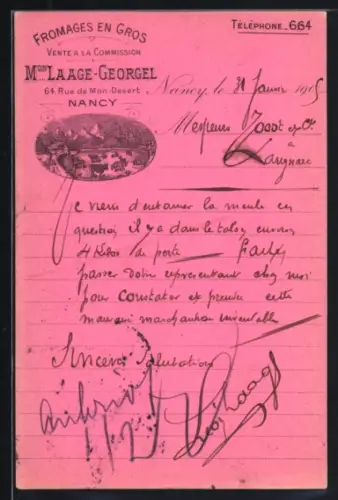 FROMAGES EN GROS
VENTE A LA COMMISSION
Mson LAAGE-GEORGEL
64 Rue de Mon-Désert
NANCY
TÉLÉPHONE_664
Nancy, le 31 Janvier 1905
Messieurs
Je viens d'entamer la meule en
question il y a dans le talon environ
4 Kilos de perte — Faites
passer votre représentant chez moi
pour constater et prendre cette
mauvaise marchandise invendable
Sincères Salutations